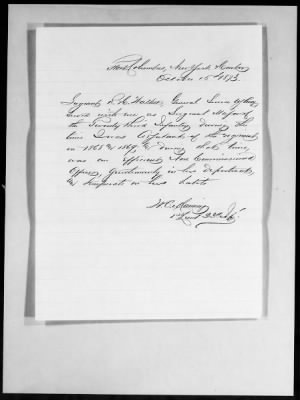 Fort Columbus, New York Harbor
October 15th 1873.
Sergeant R. H. General Service
served with me as Sergeant Major of
the Twenty third Infantry during the
time I was Adjutant of the regiment,
in 1868 & 1869, & during that time
was an efficient Non Commissioned
Officer, gentlemanly in his deportment,
& temperate in his habits
W. C. Manning
1st Lieut 23rd Inf.